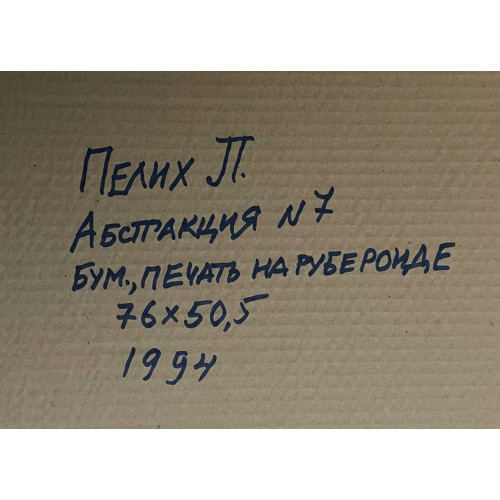 Пелих П.
Абстракция N 7
Бум., печать на рубероиде
76x50,5
1994